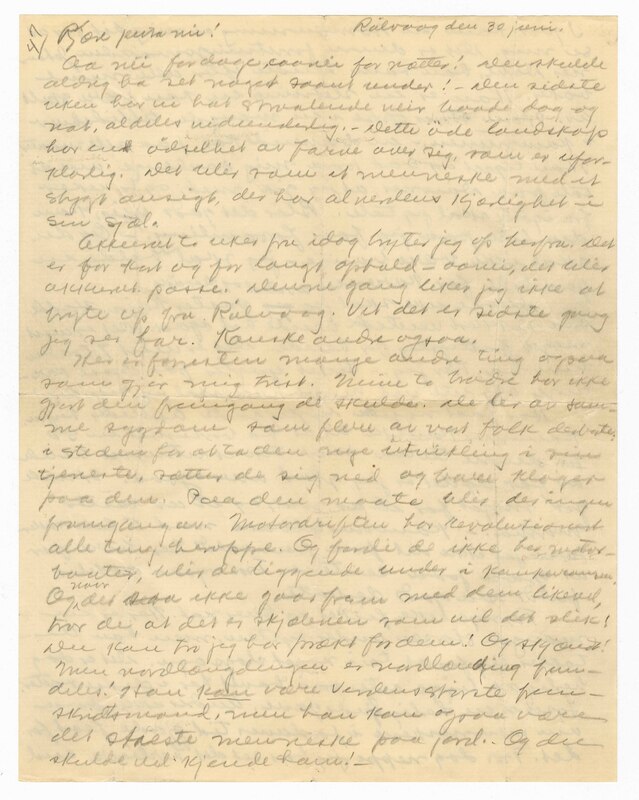 47 Kjæe jenta mi! Rölvaag den 30 juni.
Aa mi for dage, saanne for nætter! Du skulde
aldrig ha set noget saant under! – Den sidste
uken har vi hat straalende veir baade dag og
nat, aldeles vidunderlig. – Dette öde landskap
har en ödselhet av farve over sig, som er ufor-
klarlig. Det blir som et menneske med et
stygt ansigt, der har al verdens kjærlighet i
sin sjæl.
Akkurat to uker fra idag bryter jeg op herfra. Det
er for kort og for langt ophold – aanei, det blir
akkurat passe. Denne gang liker jeg ikke at
bryte op fra Rölvaag. Vet det er sidste gang
jeg ser far. Kanske andre ogsaa.
Her er forresten mange andre ting ogsaa
som gjør mig trist. Mine to brødre har ikke
gjort den fremgang de skulde. De lir av sam-
me sygdom som flere av vort folk derborte:
i steden for at ta den nye utvikling i sin
tjeneste, sætter de sig ned og bare klager
paa den. Paa den maate blir der ingen
fremgang av. Motordriften har revolutionert
alle ting heroppe. Og fordi de ikke har motor-
baater, blir de liggende under i konkurransen.
Og naar det saa ikke gaar frem med dem likevel,
tror de, at det er skjæbnen som vil det slik!
Du kan tro jeg har prækt for dem! Og skjændt!
Men nordlændingen er nordlænding frem-
deles! Han kan være verdens største frem-
skridtsmand, men han kan ogsaa være
det staeste menneske paa jord. Og du
skulde vel kjende ham! –